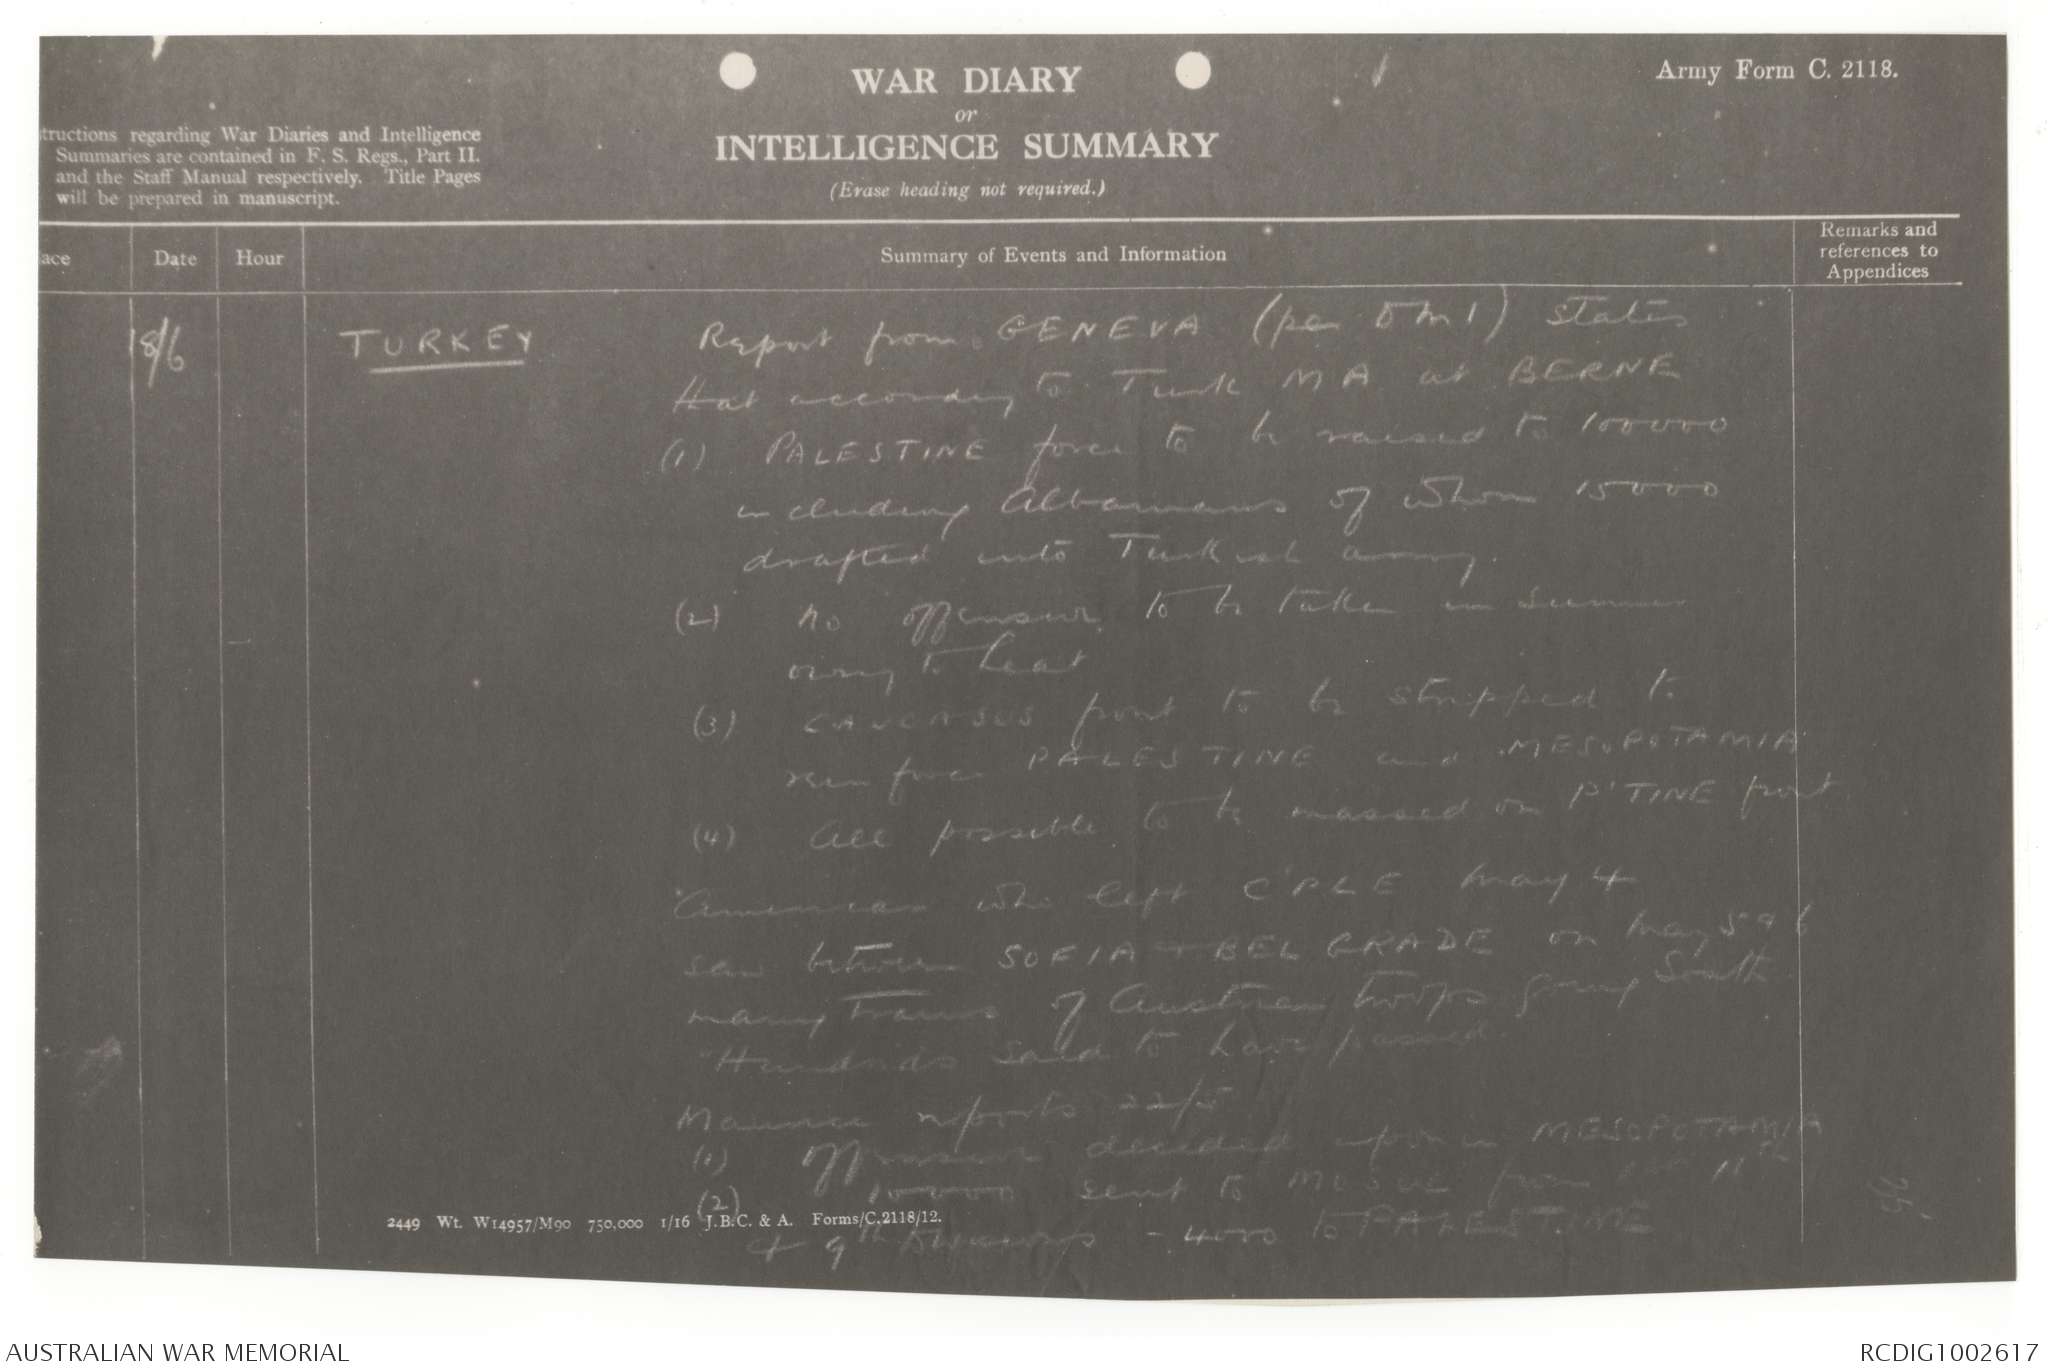 Army Form C. 2118.
WAR DIARY
or
INTELLIGENCE SUMMARY
(Erase heading not required.)
tructions regarding War Diaries and Intelligence
Summaries are contained in F. S. Regs., Part II.
and the Staff Manual respectively. Title Pages
will be prepared in manuscript.
ace
Date
Hour
Summary of Events and Information
Remarks and
references to
Appendices
18/6
TURKEY
Report from GENEVA (per DMI) states
that according to Turk MA at BERNE
(1) PALESTINE force to be raised to 100000
including Albanians of whom 15000
drafted into Turkish army.
(2) No offensive to be taken in summer
owing to heat
(3) CAUCASUS front to be stripped to
reinforce PALESTINE and MESOPOTAMIA
(4) all possible to be massed on P'TINE front
American who left C'PLE May 4
saw between SOFIA + BELGRADE on May 5 & 6
many trains of Austrian troops going South
"Hundreds said to have passed
reports 22/5
(1) Offensive decided upon in MESOPOTAMIA
(2) 10000 sent to MOSUL from 11th
+ 9th - 4000 to PALESTINE
2449 Wt. W14957/M90 750,000 1/16 J.B.C. & A. Forms/C.2118/12.
AUSTRALIAN WAR MEMORIAL
RCDIG1002617